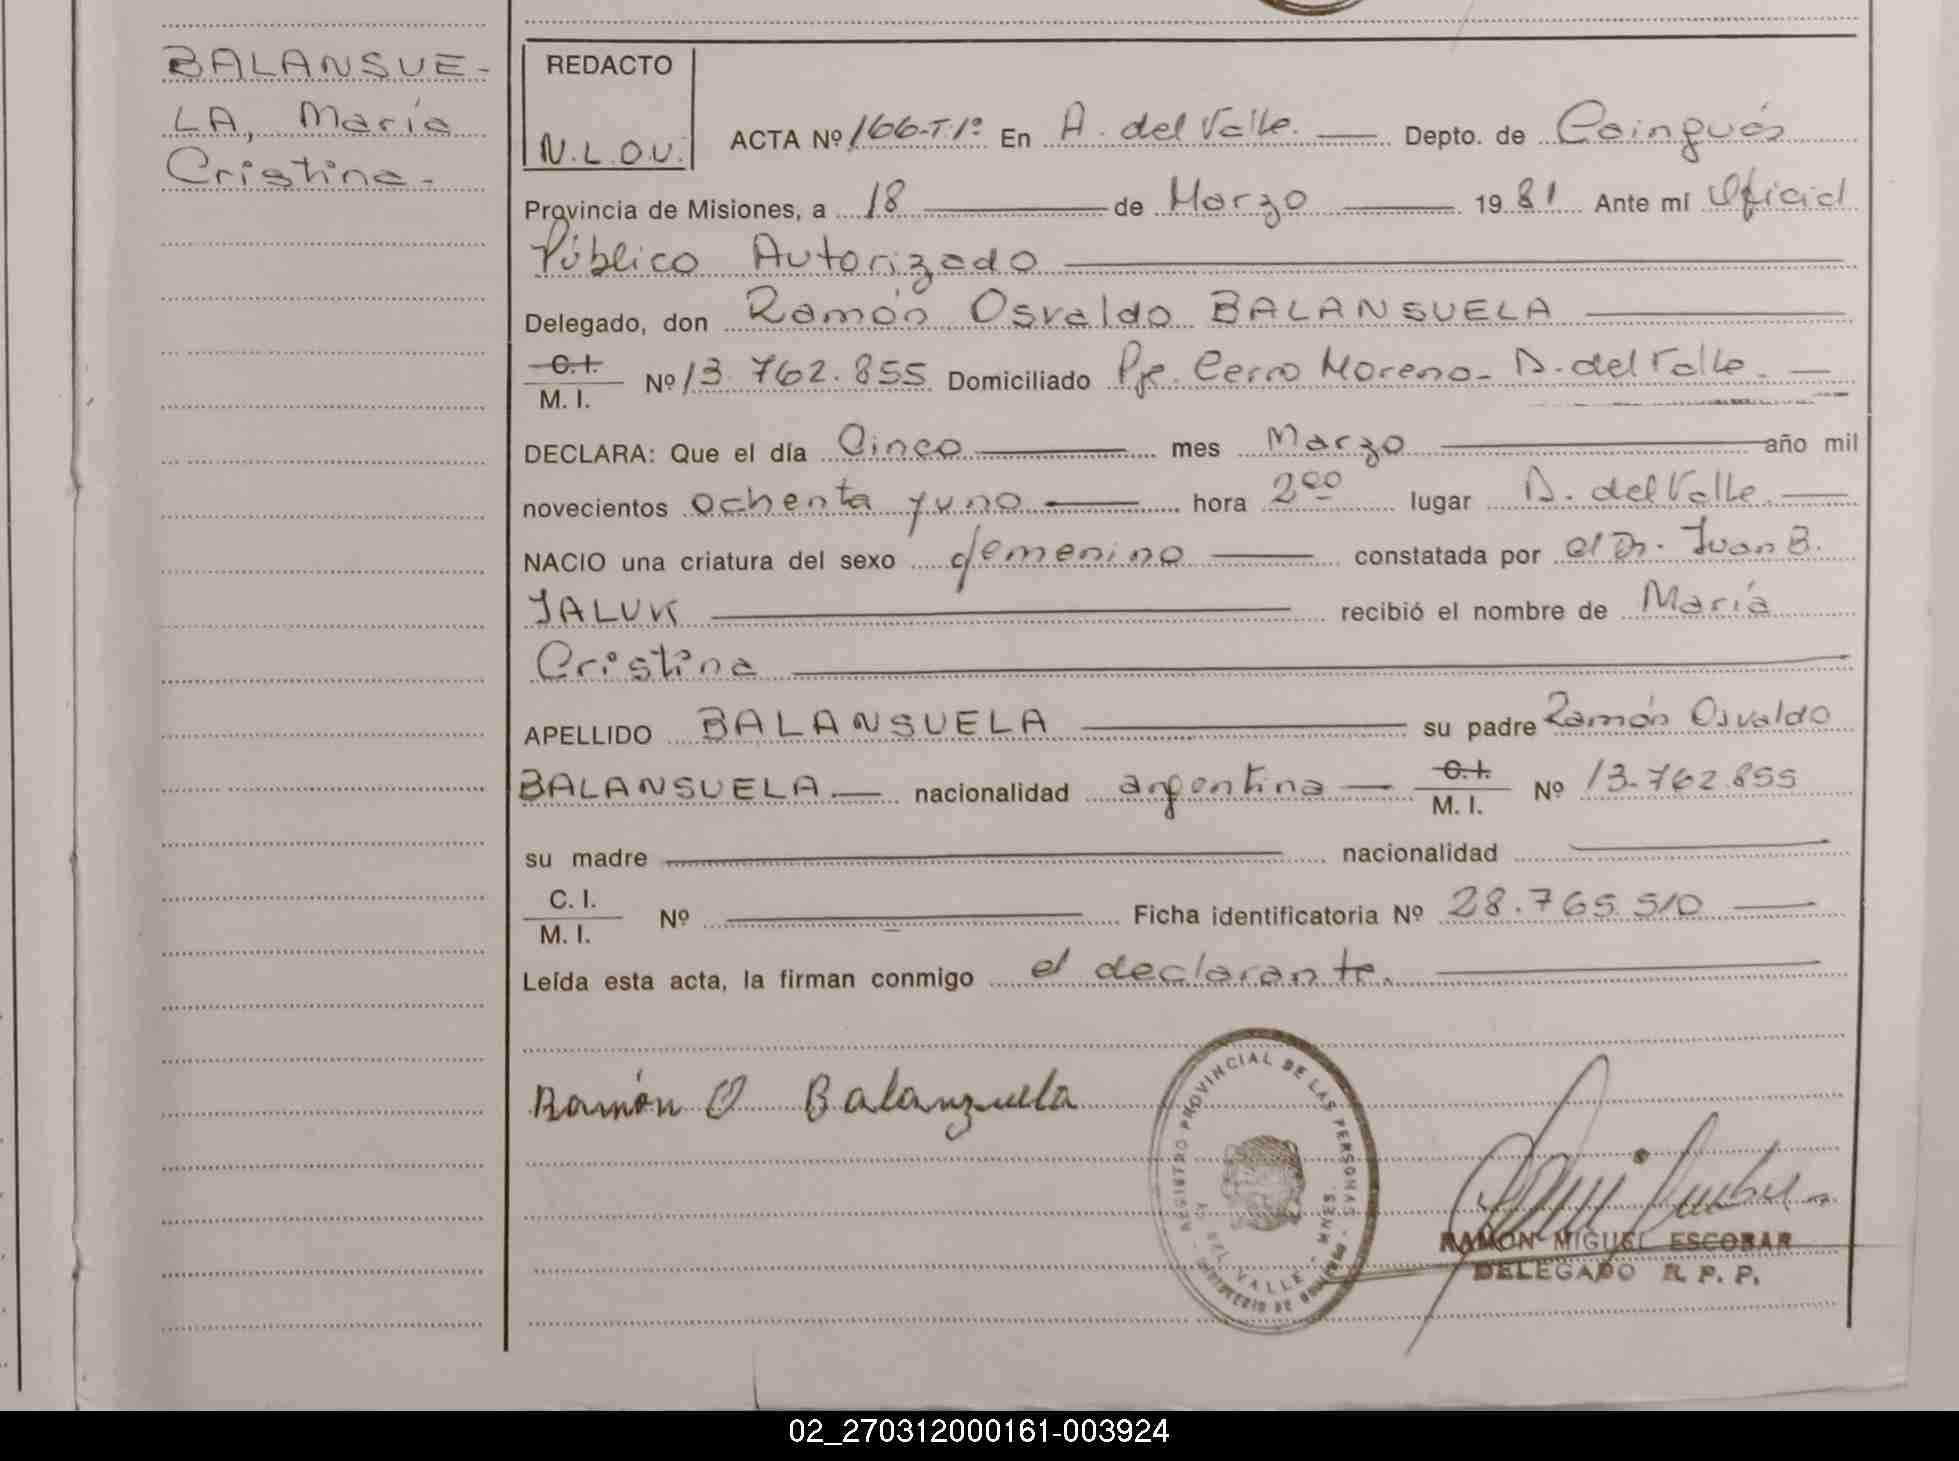 BALANSUE-
LA, María
Cristina.-
REDACTO
N.L.O.V.
ACTA Nº 166-T.1º En A. del Valle. Depto. de Cainguás
Provincia de Misiones, a 18 de Marzo 19 81 Ante mí Oficial
Público Autorizado
Delegado, don Ramón Osvaldo BALANSUELA
C.I.
M. I. Nº 13.762.855 Domiciliado Pje. Cerro Moreno- A. del Valle.
DECLARA: Que el día Cinco mes Marzo año mil
novecientos ochenta y uno hora 2⁰⁰ lugar A. del Valle.
NACIO una criatura del sexo femenino constatada por el Dr. Juan B.
JALUK recibió el nombre de María
Cristina
APELLIDO BALANSUELA su padre Ramón Osvaldo
BALANSUELA.- nacionalidad argentina C.I.
M. I. Nº 13.762.855
su madre nacionalidad
C. I.
M. I. Nº Ficha identificatoria Nº 28.765.510
Leída esta acta, la firman conmigo el declarante.
Ramón O Balanzuela
REGISTRO PROVINCIAL DE LAS PERSONAS
DEL VALLE - MNES.
MINISTERIO DE GOBIERNO
RAMON MIGUEL ESCOBAR
DELEGADO R. P. P.
02_270312000161-003924